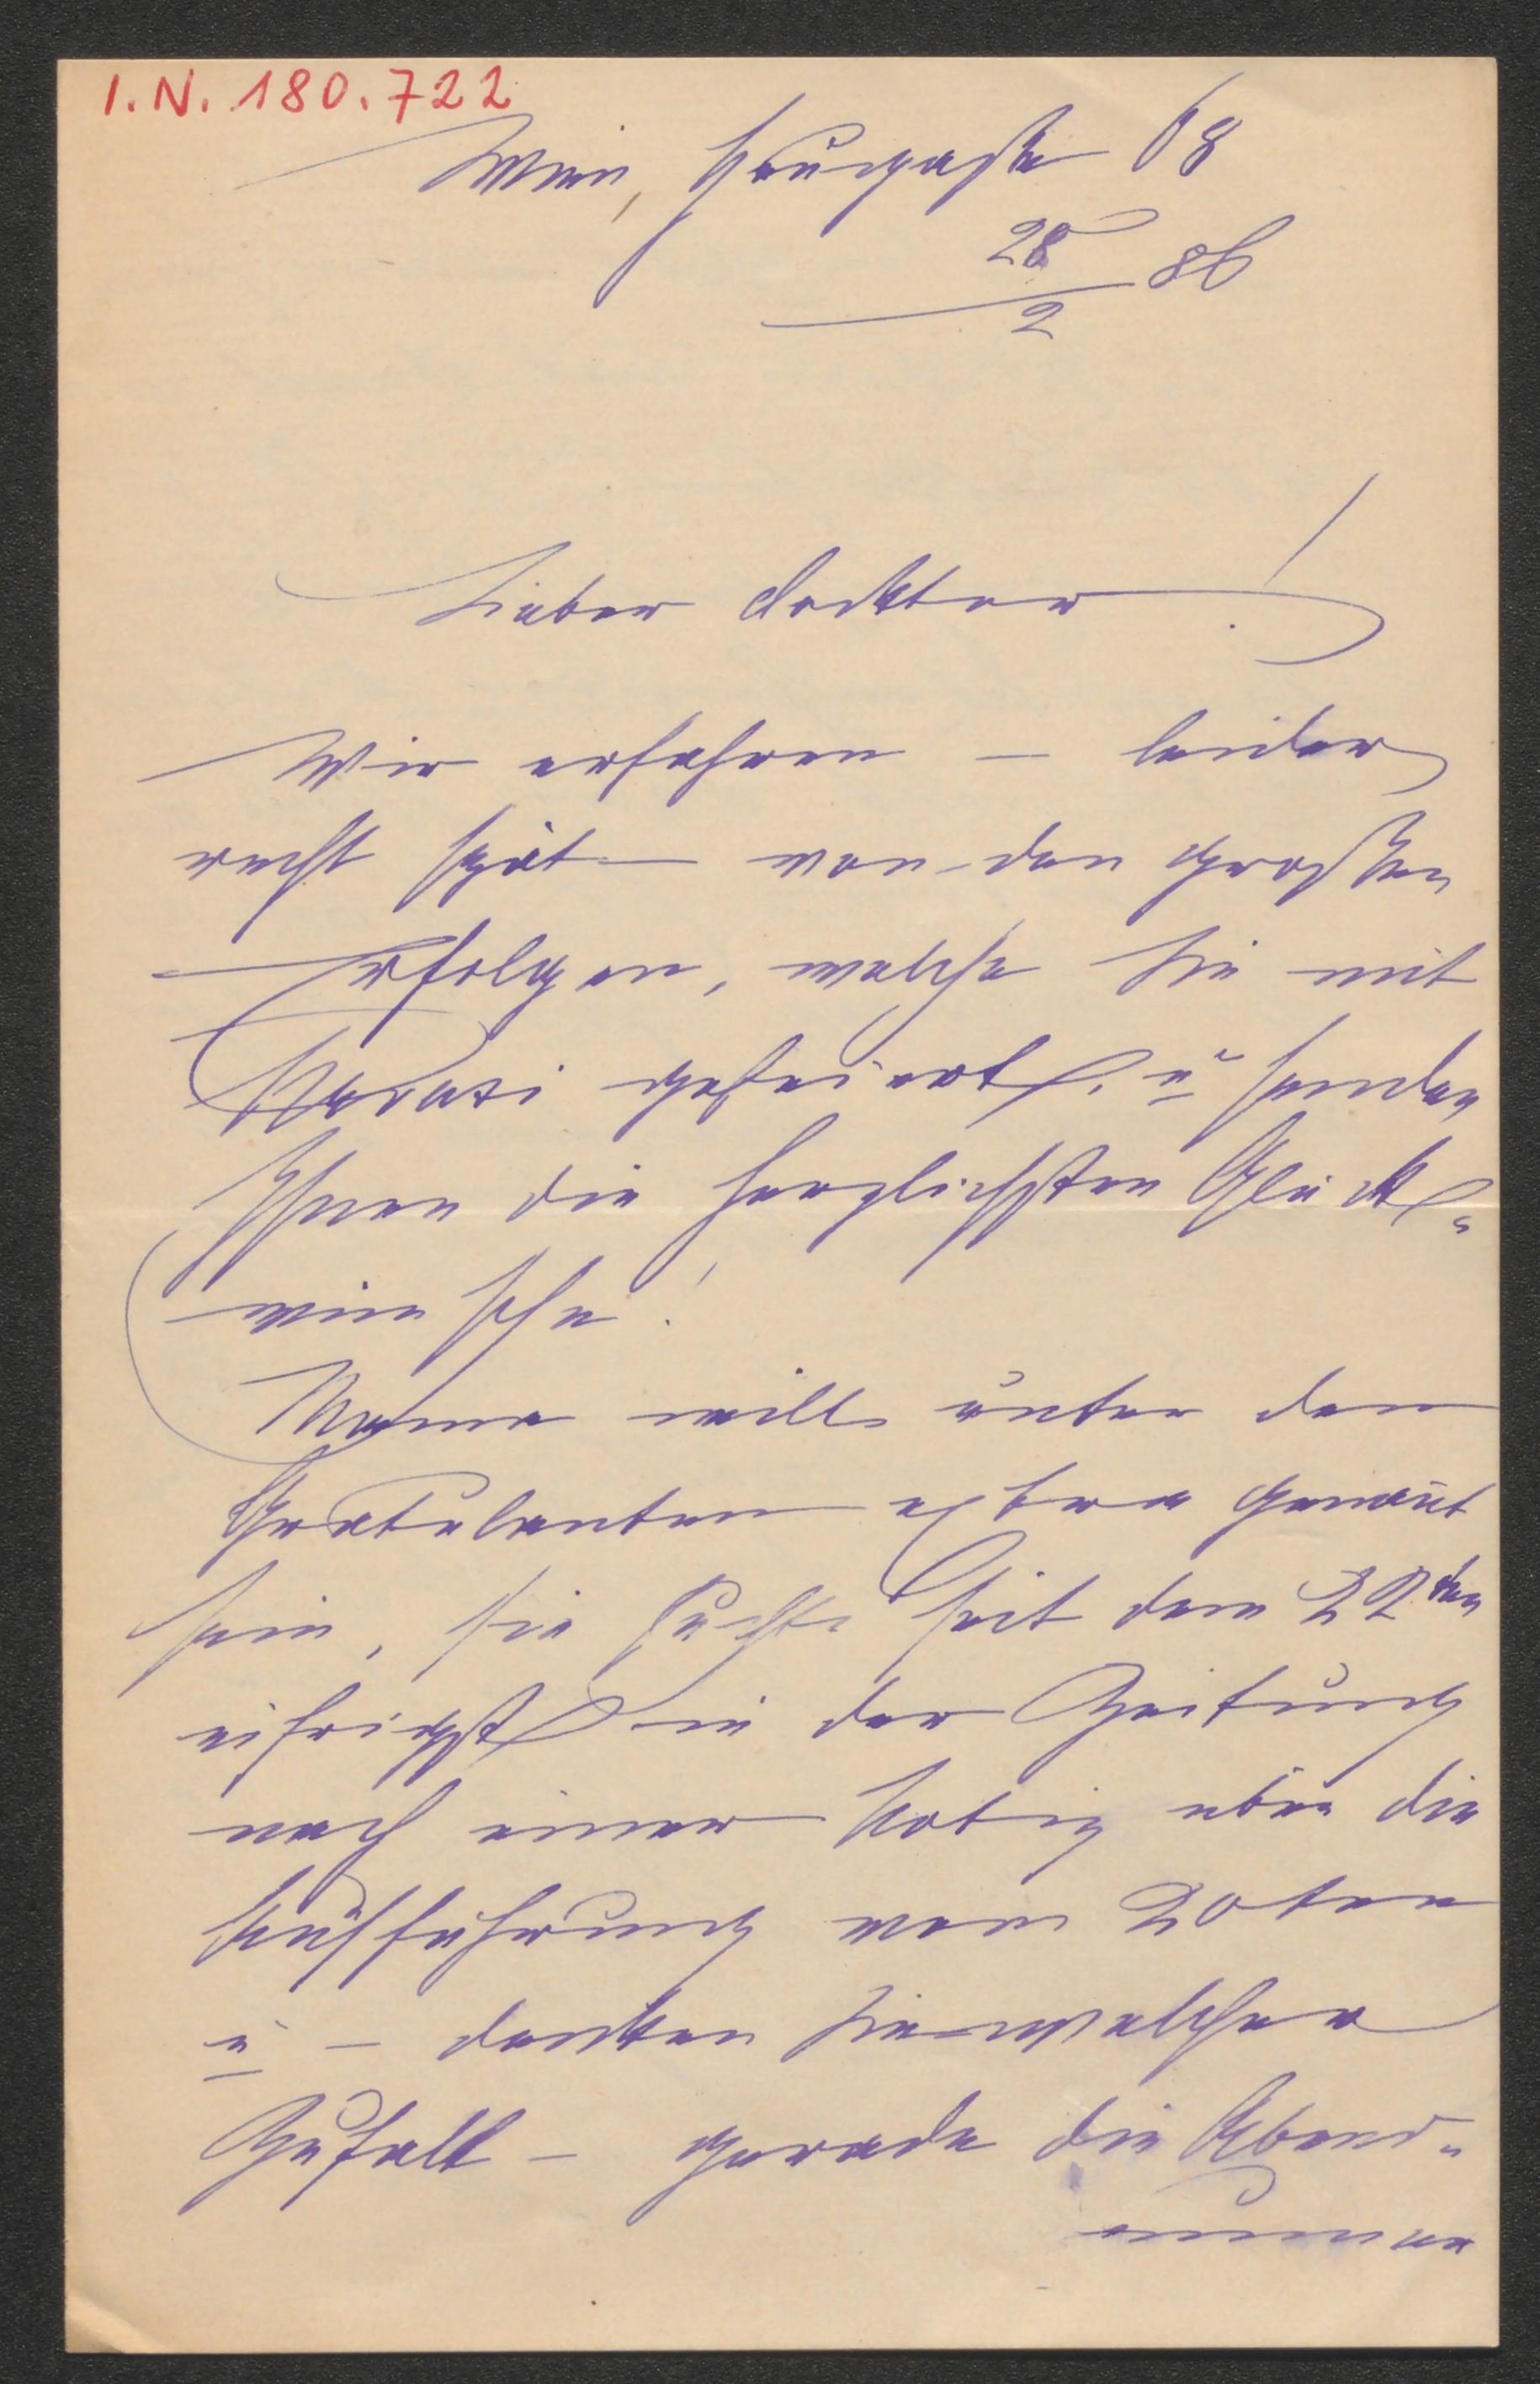 I.N. 180.722
Wien, Heugasse 68
28/2 86
Lieber Docktor!
Wir erfahren — leider
recht spät — von den großen
Erfolgen, welche Sie mit
gefeiert, u senden
Ihnen die herzlichsten Glück-
wünsche!
Mama will unter den
Gratulanten extra genant
sein, sie sucht seit dem 22ten
eifrigst in der Zeitung
nach einer Notiz über die
Aufführung vom 20ten
u — denken Sie welcher
Zufall — gerade die Abend-
nummer